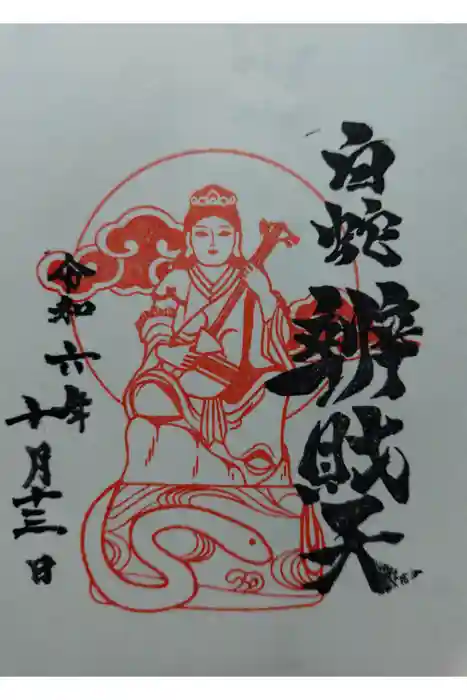 白蛇
辨財天
令和六年
十月十三日